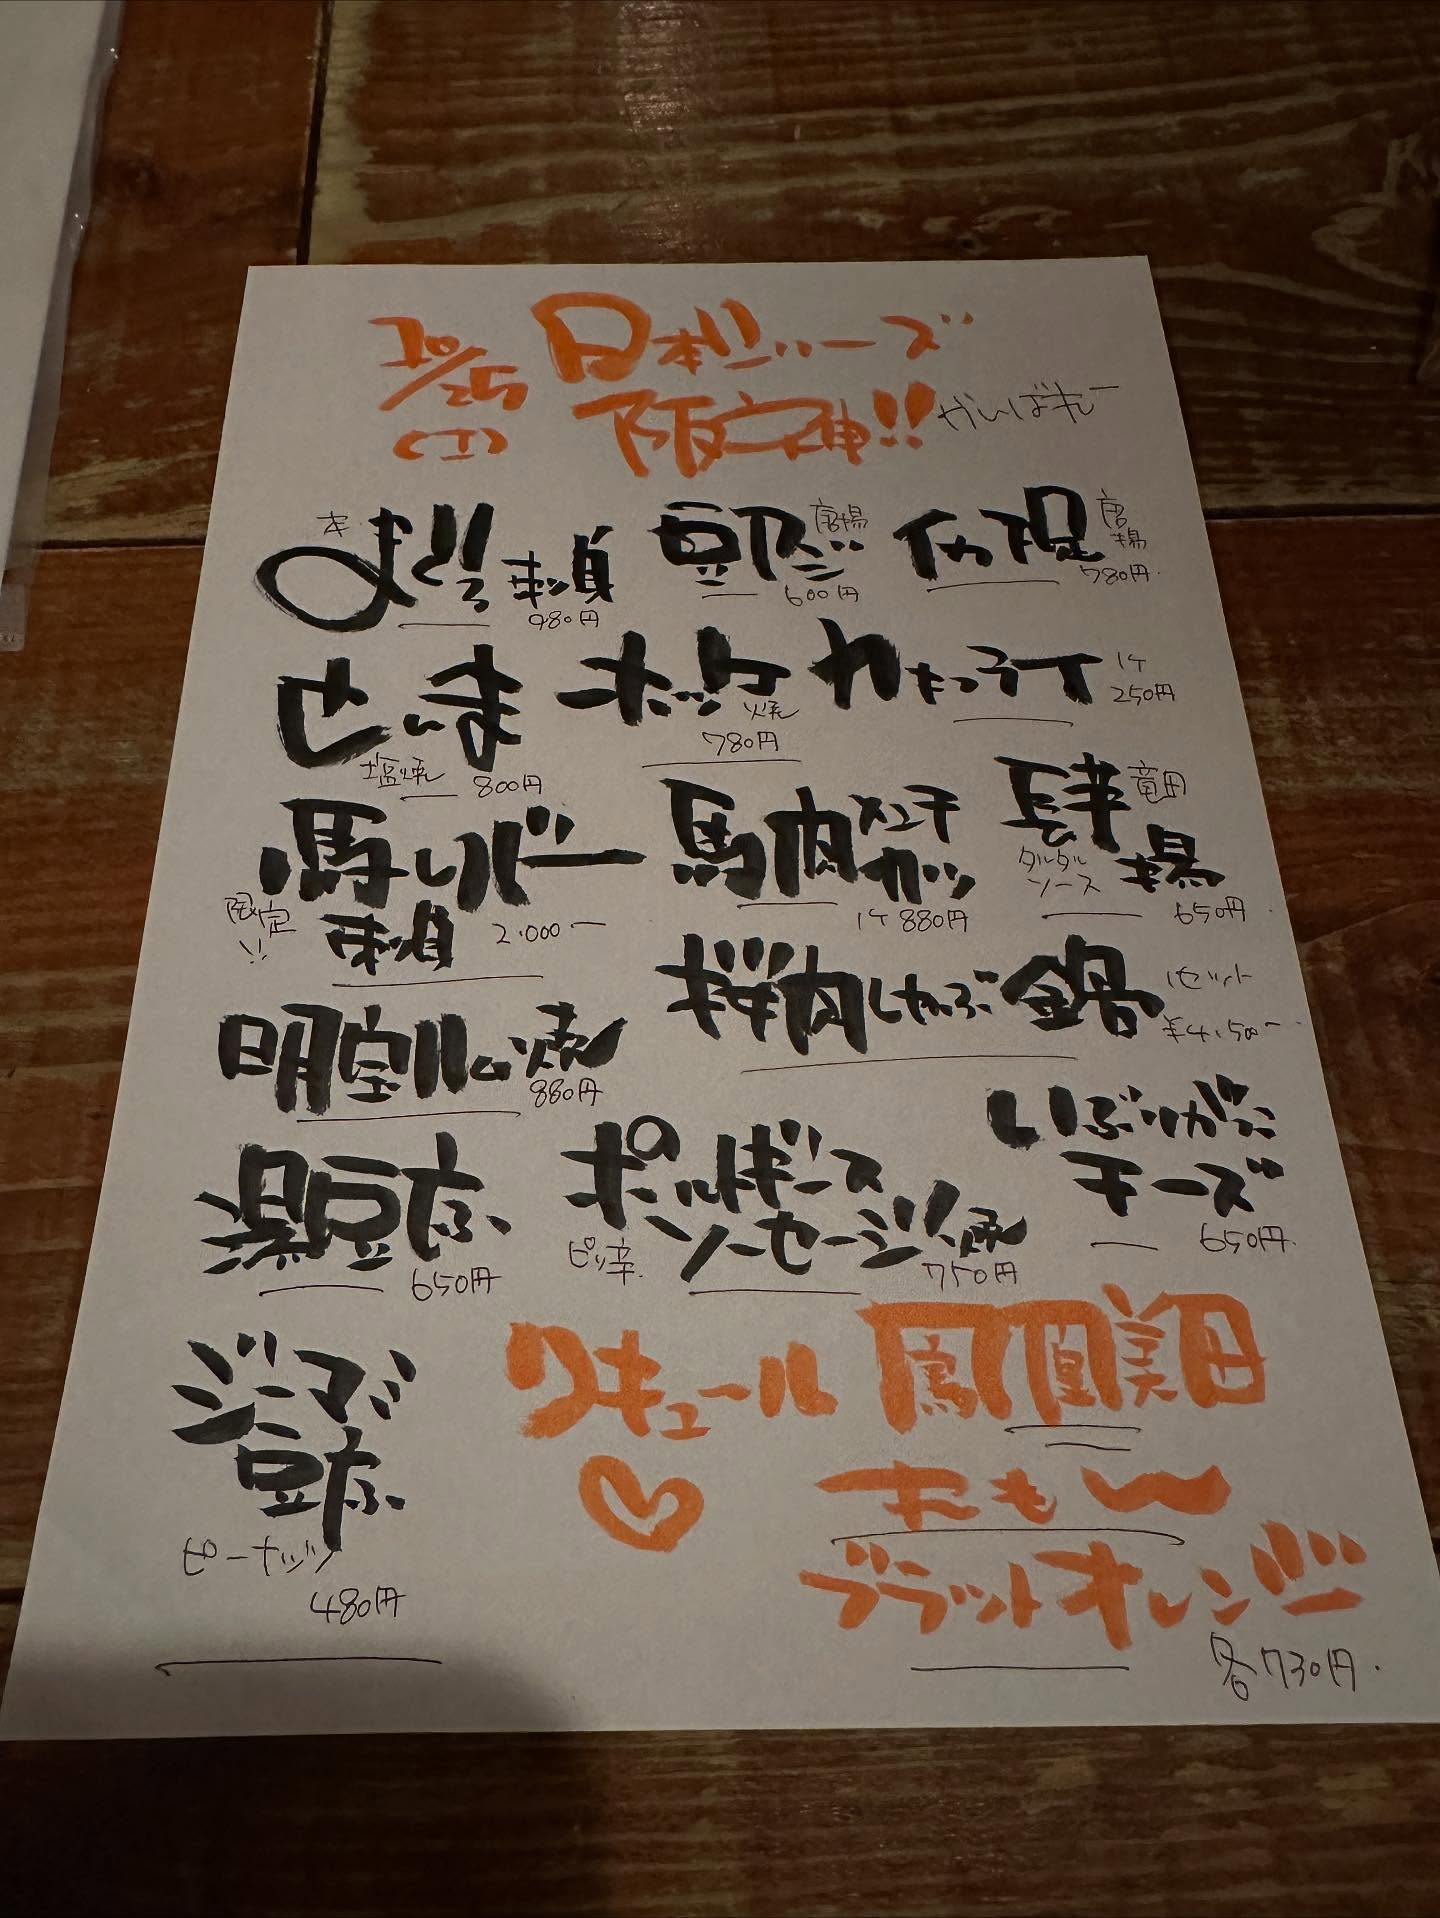 10/25 日本シリーズ
(土) 阪神!! がんばれー
本まぐろ刺身 980円
豆アジ唐揚 600円
イカ下足唐揚 780円
さんま塩焼 800円
ホッケ焼 780円
カキフライ 1ケ 250円
馬レバー刺身 限定!! 2.000ー
馬肉メンチカツ 1ケ 880円
長芋竜田揚 タルタルソース 650円
桜肉しゃぶ鍋 1セット ¥4.500ー
明宝ハム焼 880円
湯豆ふ 650円
ポルトギースソーセージ焼 ピリ辛 750円
いぶりがっこチーズ 650円
ジーマミ豆ふ ピーナッツ 480円
リキュール 鳳凰美田
もも
ブラッドオレンジ
各730円